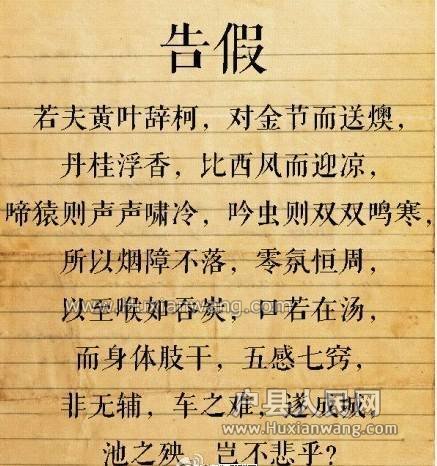 告假
若夫黄叶辞柯，对金节而送燠，
丹桂浮香，比西风而迎凉，
啼猿则声声啸冷，吟虫则双双鸣寒，
所以烟障不落，零氛恒周，
www.Huxianwang.com
以至喉如吞炭，口若在汤，
而身体肢干，五感七窍，
户县人民网
www.Huxianwang.com
非无辅，车之难，遂成城，
池之殃，岂不悲乎？